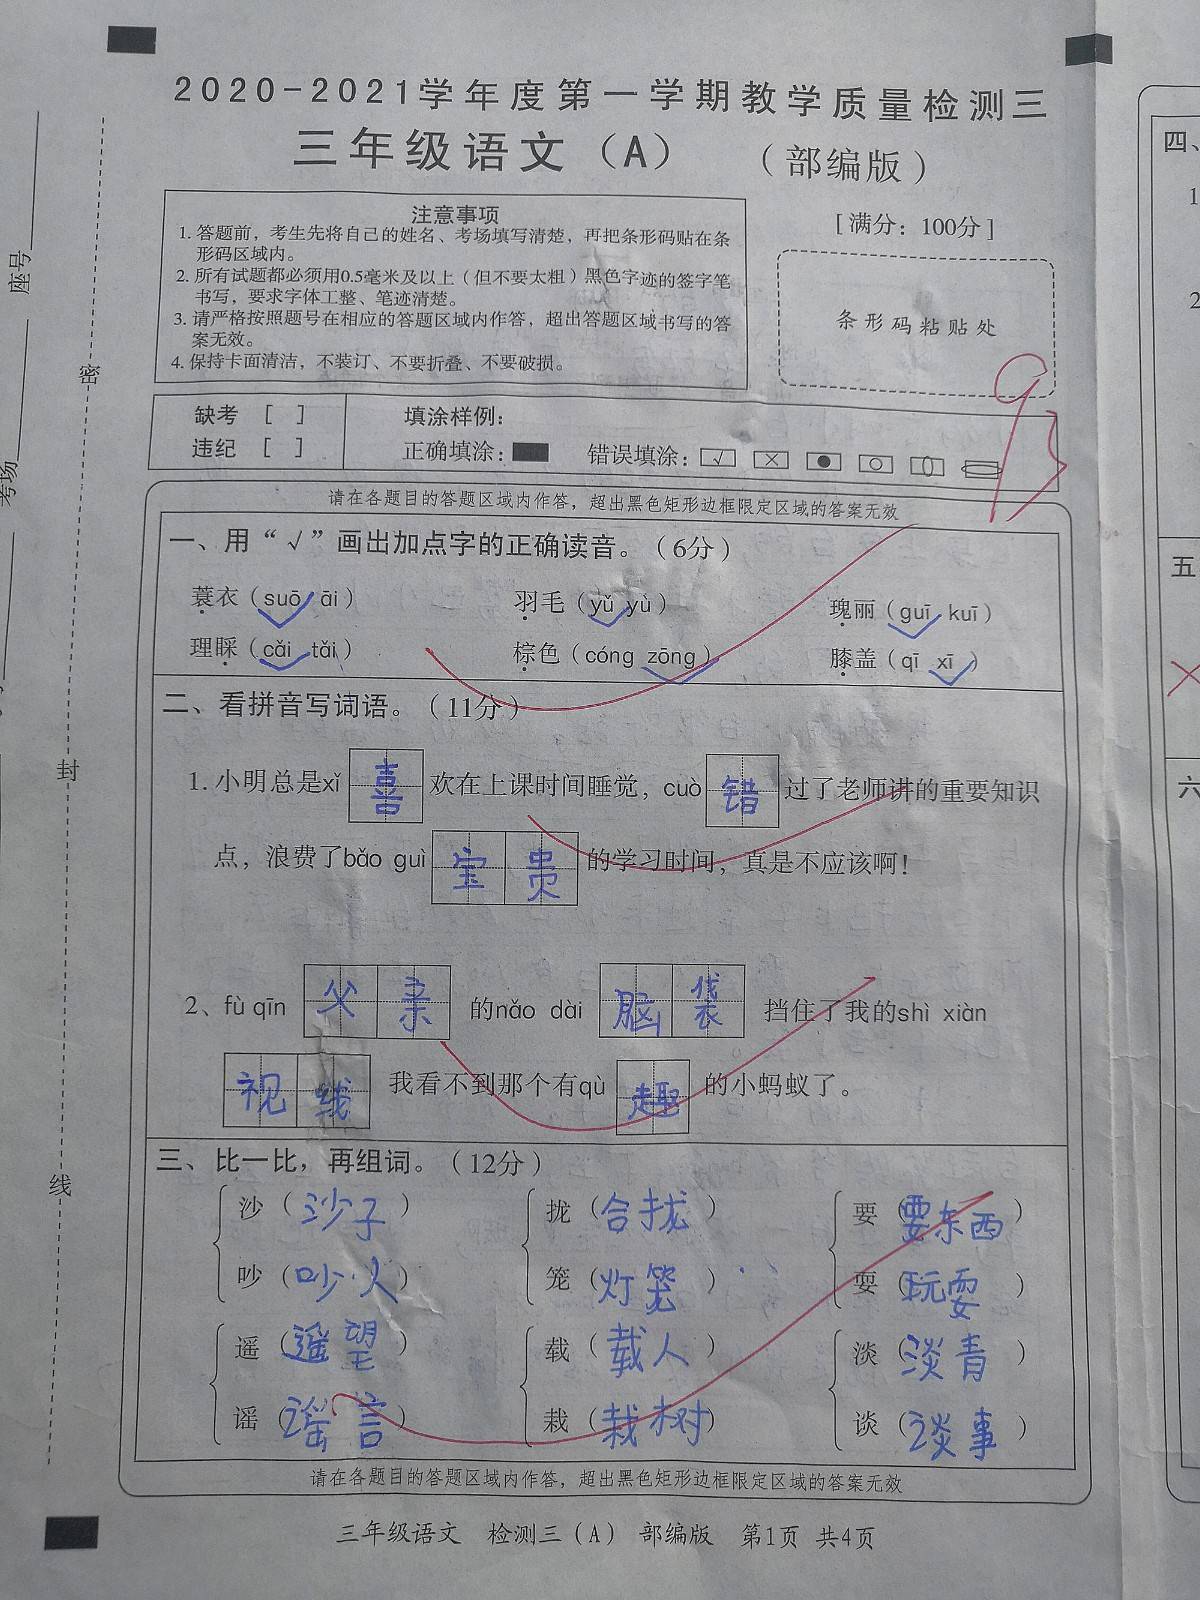 2020-2021学年度第一学期教学质量检测三
三年级语文（A）（部编版）
注意事项
1. 答题前，考生先将自己的姓名、考场填写清楚，再把条形码贴在条
形码区域内。
2. 所有试题都必须用0.5毫米及以上（但不要太粗）黑色字迹的签字笔
书写，要求字体工整、笔迹清楚。
3. 请严格按照题号在相应的答题区域内作答，超出答题区域书写的答
案无效。
4. 保持卡面清洁，不装订、不要折叠、不要破损。
[ 满分：100分 ]
条形码粘贴处
93
缺考 [ ] 填涂样例：
违纪 [ ] 正确填涂： 错误填涂：
请在各题目的答题区域内作答，超出黑色矩形边框限定区域的答案无效
一、用“√”画出加点字的正确读音。（6分）
蓑衣（suō āi） 羽毛（yǔ yù） 瑰丽（guī kuī）
理睬（cǎi tǎi） 棕色（cóng zōng） 膝盖（qī xī）
二、看拼音写词语。（11分）
1. 小明总是xǐ 喜 欢在上课时间睡觉，cuò 错 过了老师讲的重要知识
点，浪费了bǎo guì 宝贵 的学习时间，真是不应该啊！
2、fù qīn 父亲 的nǎo dài 脑袋 挡住了我的shì xiàn
视线 我看不到那个有qù 趣 的小蚂蚁了。
三、比一比，再组词。（12分）
沙（沙子） 拢（合拢） 要（要东西）
吵（吵火） 笼（灯笼） 耍（玩耍）
遥（遥望） 载（载人） 淡（淡青）
谣（谣言） 栽（栽树） 谈（谈事）
请在各题目的答题区域内作答，超出黑色矩形边框限定区域的答案无效
三年级语文 检测三（A） 部编版 第1页 共4页
座号
考场
密
封
线
四、
1
2
五
六